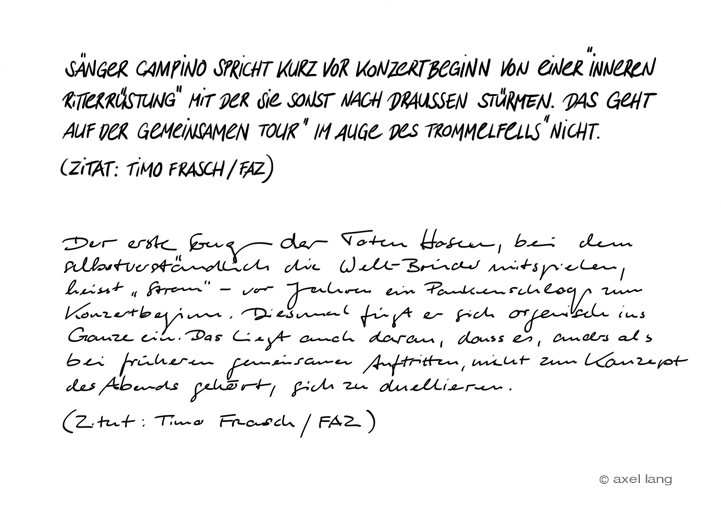 SÄNGER CAMPINO SPRICHT KURZ VOR KONZERTBEGINN VON EINER "INNEREN
RITTERRÜSTUNG" MIT DER SIE SONST NACH DRAUSSEN STÜRMEN. DAS GEHT
AUF DER GEMEINSAMEN TOUR "IM AUGE DES TROMMELFELLS" NICHT.
(ZITAT: TIMO FRASCH/FAZ)
Der erste Song der Toten Hosen, bei dem
selbstverständlich die Well-Brüder mitspielen,
heisst „Strom" – vor Jahren ein Paukenschlag zum
Konzertbeginn. Diesmal fügt er sich organisch ins
Ganze ein. Das liegt auch daran, dass es, anders als
bei früheren gemeinsamen Auftritten, nicht zum Konzept
des Abends gehört, sich zu duellieren.
(Zitat: Timo Frasch/FAZ)
© axel lang